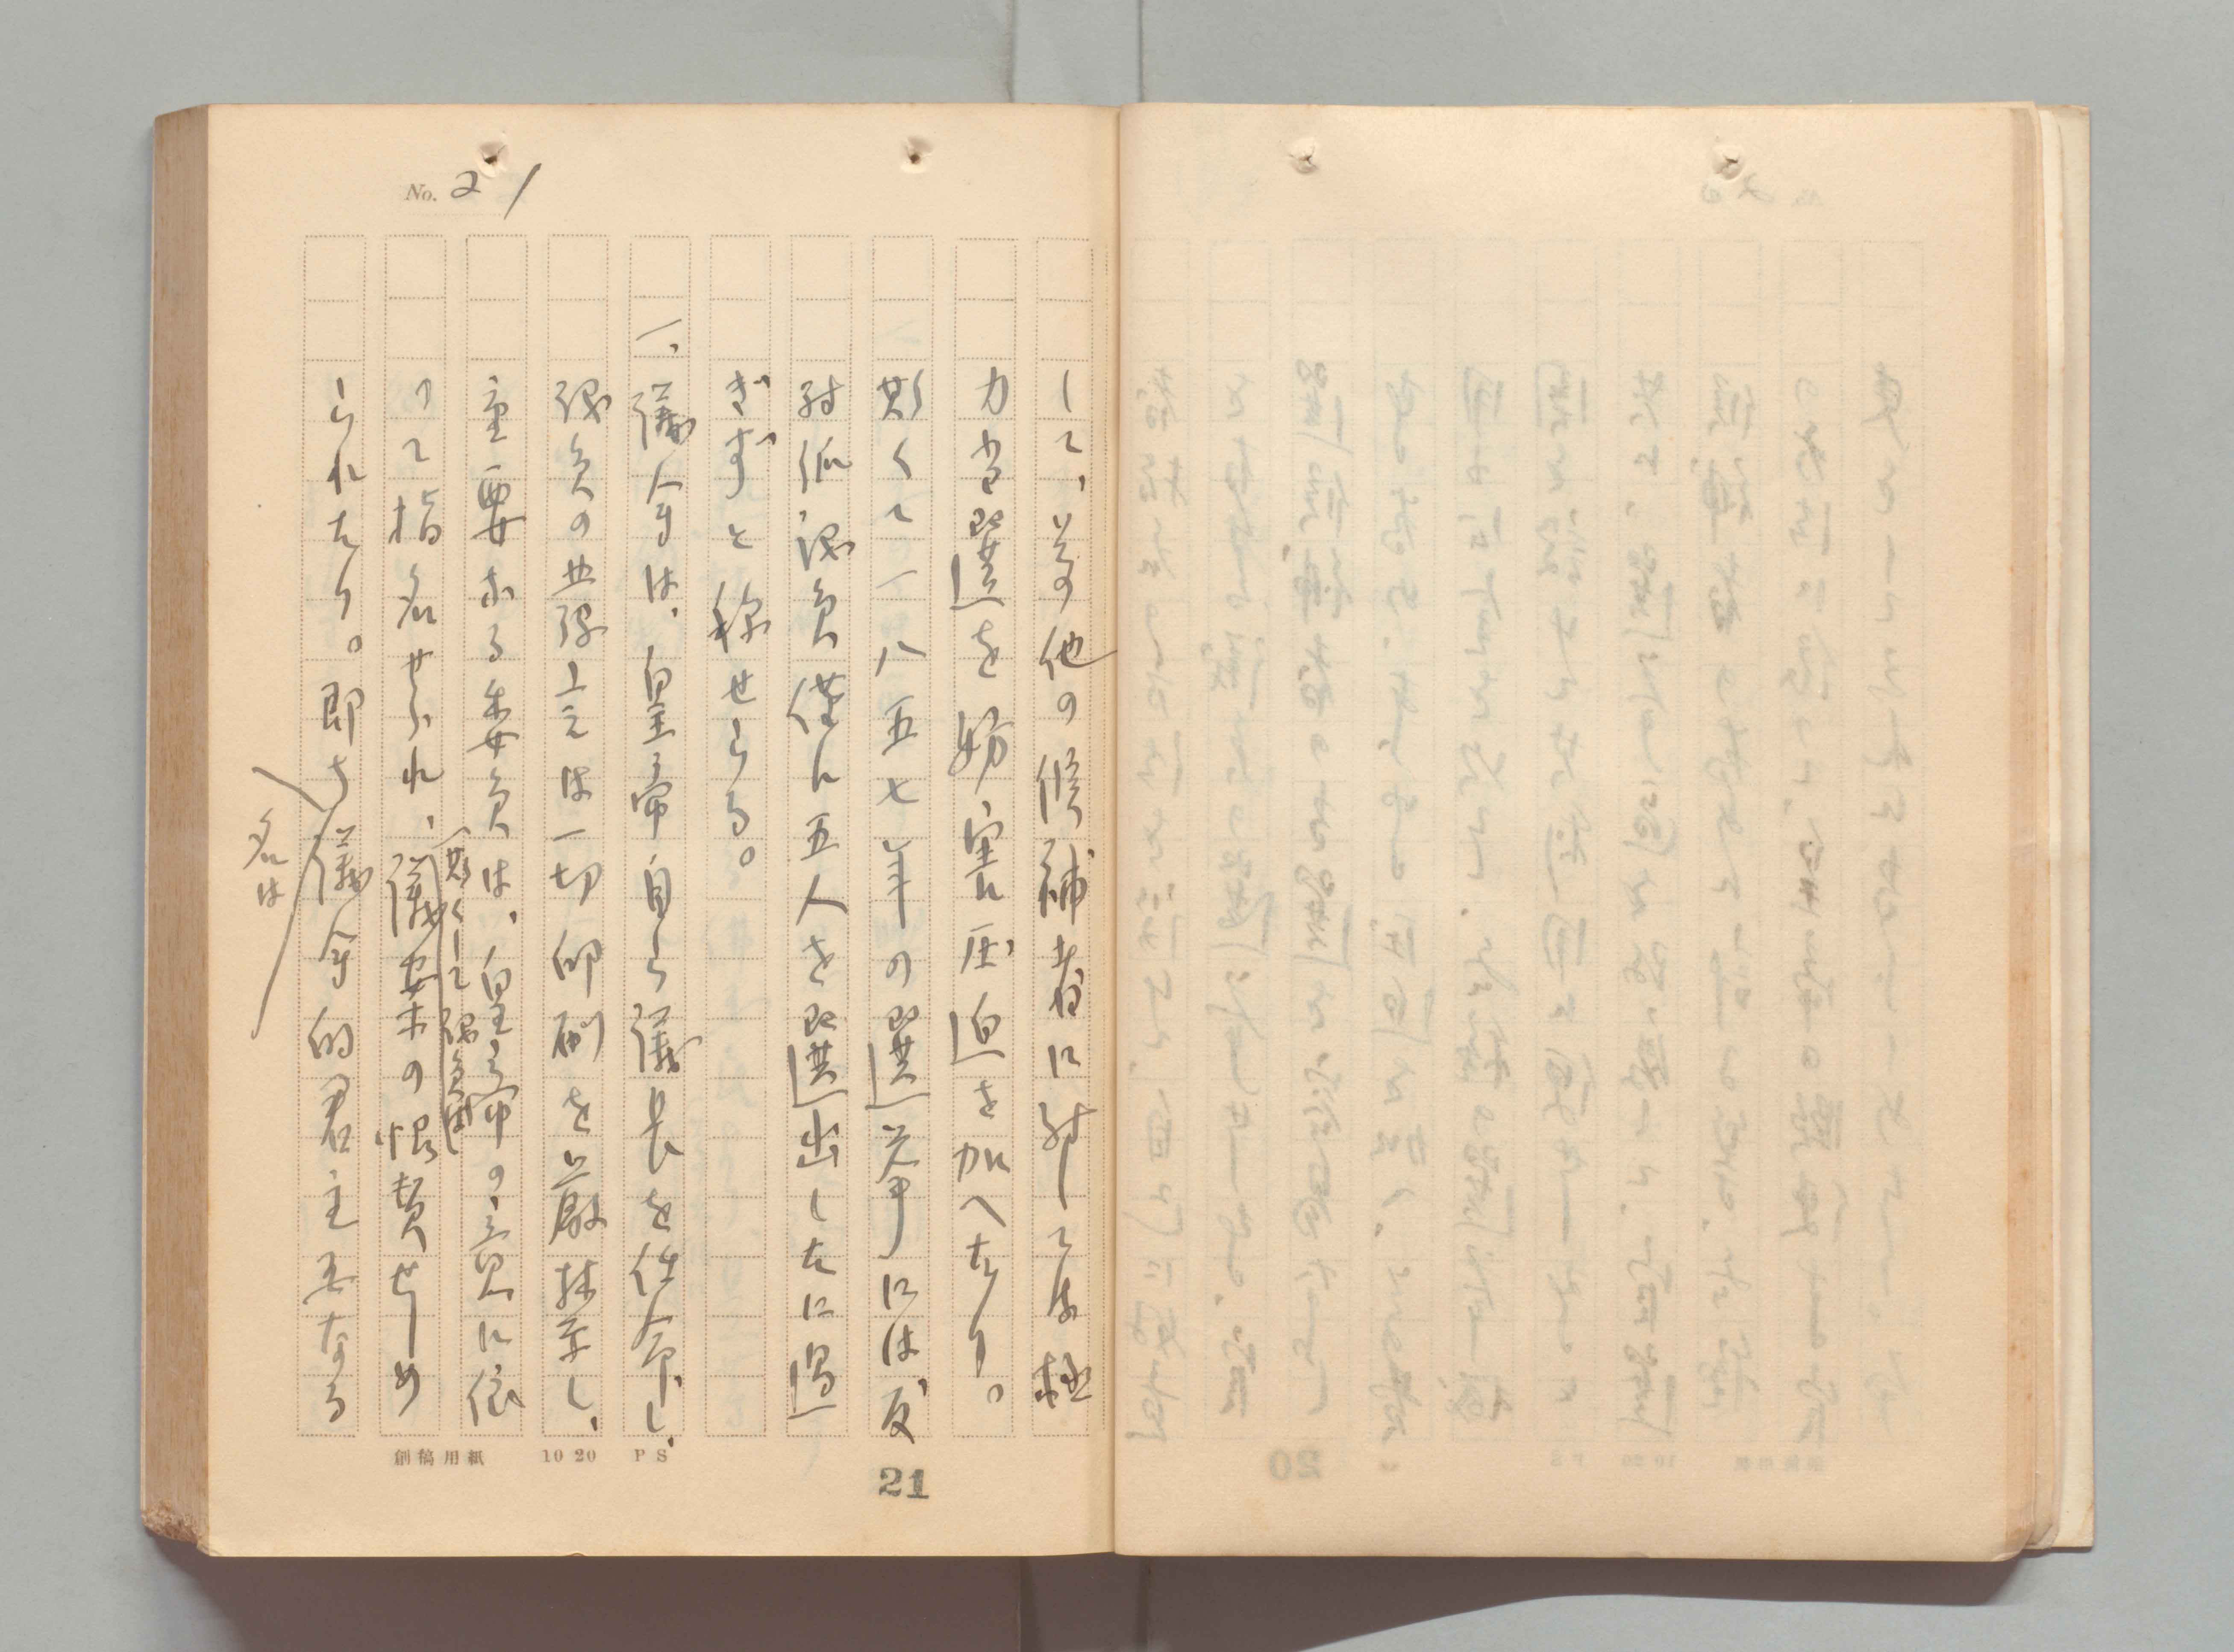 No. 21
して、其他の候補者に対しては極
力当選を妨害圧迫を加へたり。
斯くて一八五七年の選挙には反
対派議員僅に五人を選出したに過
ぎずと称せらる。
一、議会は、皇帝自ら議長を任命し、
議員の共議上言は一切印刷を厳禁し、
重要なる委員は、皇帝の意見に依
つて指名せられ、議案の
斯くして議員
せしめ
られたり。即ち議会的君主主なる
名は
創稿用紙 10 20 PS
21